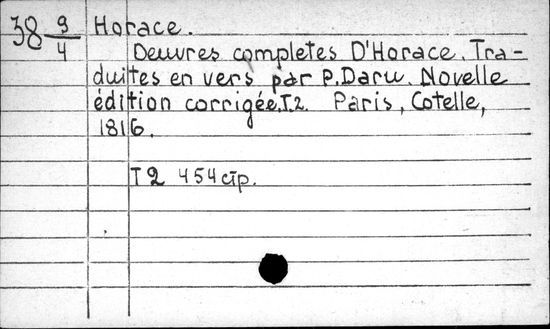 38 9/4 Horace.
Oeuvres completes D'Horace. Tra-
duites en vers par P. Daru. Novelle
édition corrigée. T.2. Paris, Cotelle,
1816.
T 2 454 стр.